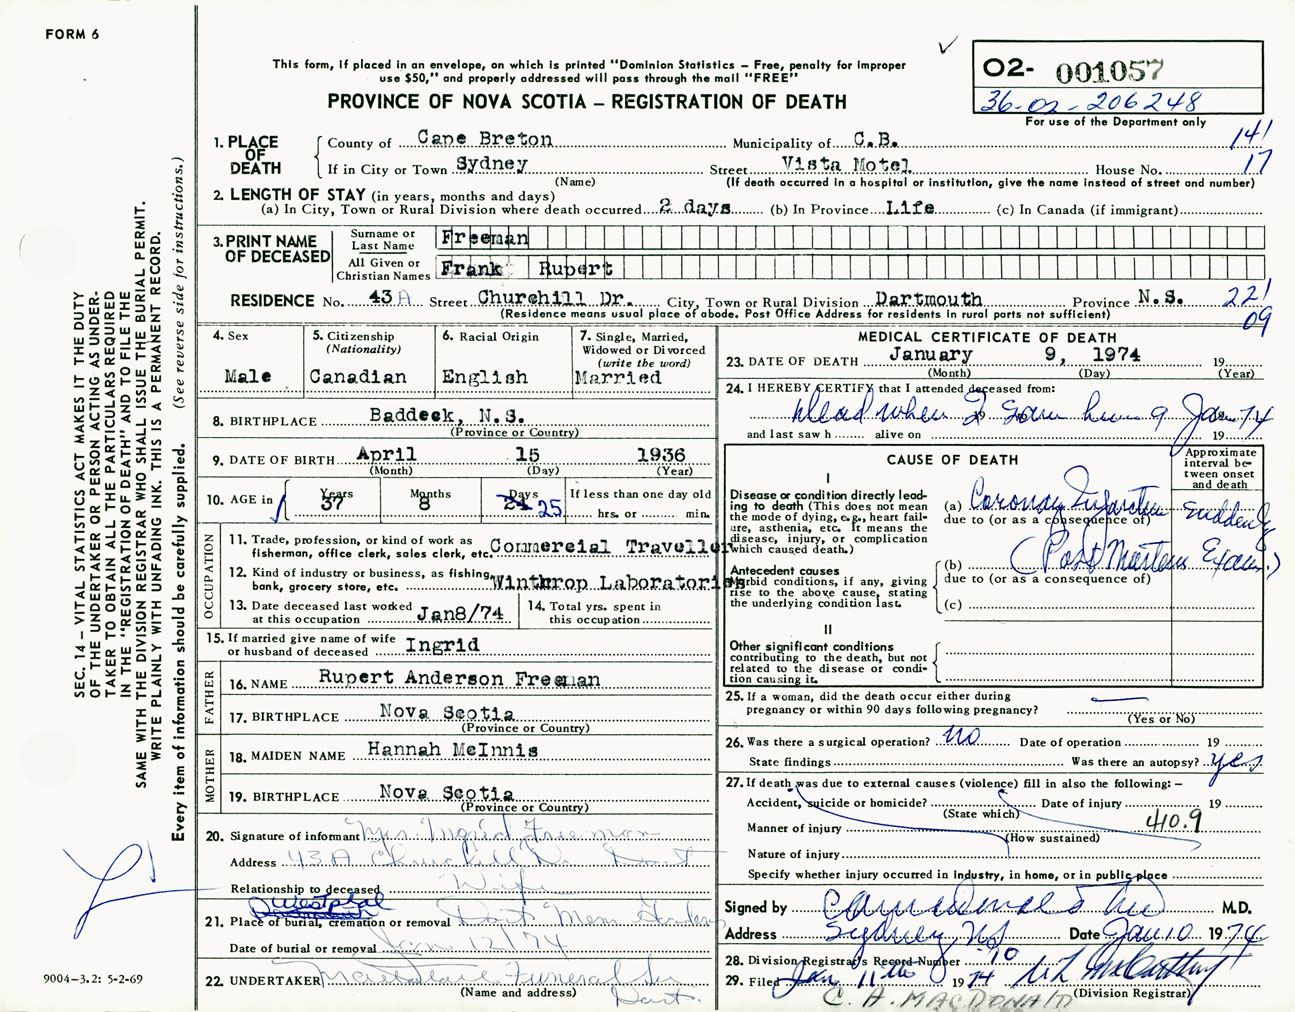 FORM 6
This form, if placed in an envelope, on which is printed "Dominion Statistics – Free, penalty for improper
use $50," and properly addressed will pass through the mail "FREE"
PROVINCE OF NOVA SCOTIA – REGISTRATION OF DEATH
02- 001057
36-02-206248
For use of the Department only
1. PLACE OF DEATH
County of Cape Breton Municipality of C.B. 141
If in City or Town Sydney Street Vista Motel House No. 17
(Name) (If death occurred in a hospital or institution, give the name instead of street and number)
2. LENGTH OF STAY (in years, months and days)
(a) In City, Town or Rural Division where death occurred 2 days (b) In Province Life (c) In Canada (if immigrant)
3. PRINT NAME OF DECEASED
Surname or Last Name Freeman
All Given or Christian Names Frank Rupert
RESIDENCE No. 43 A Street Churchill Dr. City, Town or Rural Division Dartmouth Province N.S. 221
(Residence means usual place of abode. Post Office Address for residents in rural parts not sufficient) 09
4. Sex
Male
5. Citizenship
(Nationality)
Canadian
6. Racial Origin
English
7. Single, Married,
Widowed or Divorced
(write the word)
Married
8. BIRTHPLACE Baddeck, N.S.
(Province or Country)
9. DATE OF BIRTH April 15 1936
(Month) (Day) (Year)
10. AGE in Years 37 Months 8 Days 24 25
If less than one day old
hrs. or min.
OCCUPATION
11. Trade, profession, or kind of work as
fisherman, office clerk, sales clerk, etc. Commercial Traveller
12. Kind of industry or business, as fishing,
bank, grocery store, etc. Winthrop Laboratories
13. Date deceased last worked
at this occupation Jan8/74
14. Total yrs. spent in
this occupation
15. If married give name of wife
or husband of deceased Ingrid
FATHER
16. NAME Rupert Anderson Freeman
17. BIRTHPLACE Nova Scotia
(Province or Country)
MOTHER
18. MAIDEN NAME Hannah McInnis
19. BIRTHPLACE Nova Scotia
(Province or Country)
20. Signature of informant Mrs Ingrid Freeman
Address 43A Churchill Dr. Dart
Relationship to deceased Wife
Westphal
21. Place of burial, cremation or removal Dart Mem Gardens
Date of burial or removal Jan 12/74
22. UNDERTAKER Funeral
(Name and address) Dart.
MEDICAL CERTIFICATE OF DEATH
23. DATE OF DEATH January 9, 1974 19
(Month) (Day) (Year)
24. I HEREBY CERTIFY that I attended deceased from:
Dead when I saw him 9 Jan 74
and last saw h alive on 19
CAUSE OF DEATH
Approximate
interval be-
tween onset
and death
I
Disease or condition directly lead-
ing to death (This does not mean
the mode of dying, e.g., heart fail-
ure, asthenia, etc. It means the
disease, injury, or complication
which caused death.)
(a) Coronary Infarction Suddenly
due to (or as a consequence of)
(Post Mortem Exam.)
Antecedent causes
Morbid conditions, if any, giving
rise to the above cause, stating
the underlying condition last.
(b)
due to (or as a consequence of)
(c)
II
Other significant conditions
contributing to the death, but not
related to the disease or condi-
tion causing it.
25. If a woman, did the death occur either during
pregnancy or within 90 days following pregnancy?
(Yes or No)
26. Was there a surgical operation? no Date of operation 19
State findings Was there an autopsy? yes
27. If death was due to external causes (violence) fill in also the following: –
Accident, suicide or homicide? Date of injury 19
(State which)
Manner of injury 410.9
(How sustained)
Nature of injury
Specify whether injury occurred in industry, in home, or in public place
Signed by M.D.
Address Sydney NS Date Jan 10 1974
28. Division Registrar's Record Number 10
29. Filed Jan. 11th 1974
(Division Registrar)
C. A. MACDONALD
SEC. 14 – VITAL STATISTICS ACT MAKES IT THE DUTY
OF THE UNDERTAKER OR PERSON ACTING AS UNDER-
TAKER TO OBTAIN ALL THE PARTICULARS REQUIRED
IN THE "REGISTRATION OF DEATH" AND TO FILE THE
SAME WITH THE DIVISION REGISTRAR WHO SHALL ISSUE THE BURIAL PERMIT.
WRITE PLAINLY WITH UNFADING INK. THIS IS A PERMANENT RECORD.
Every item of information should be carefully supplied. (See reverse side for instructions.)
9004–3.2: 5-2-69